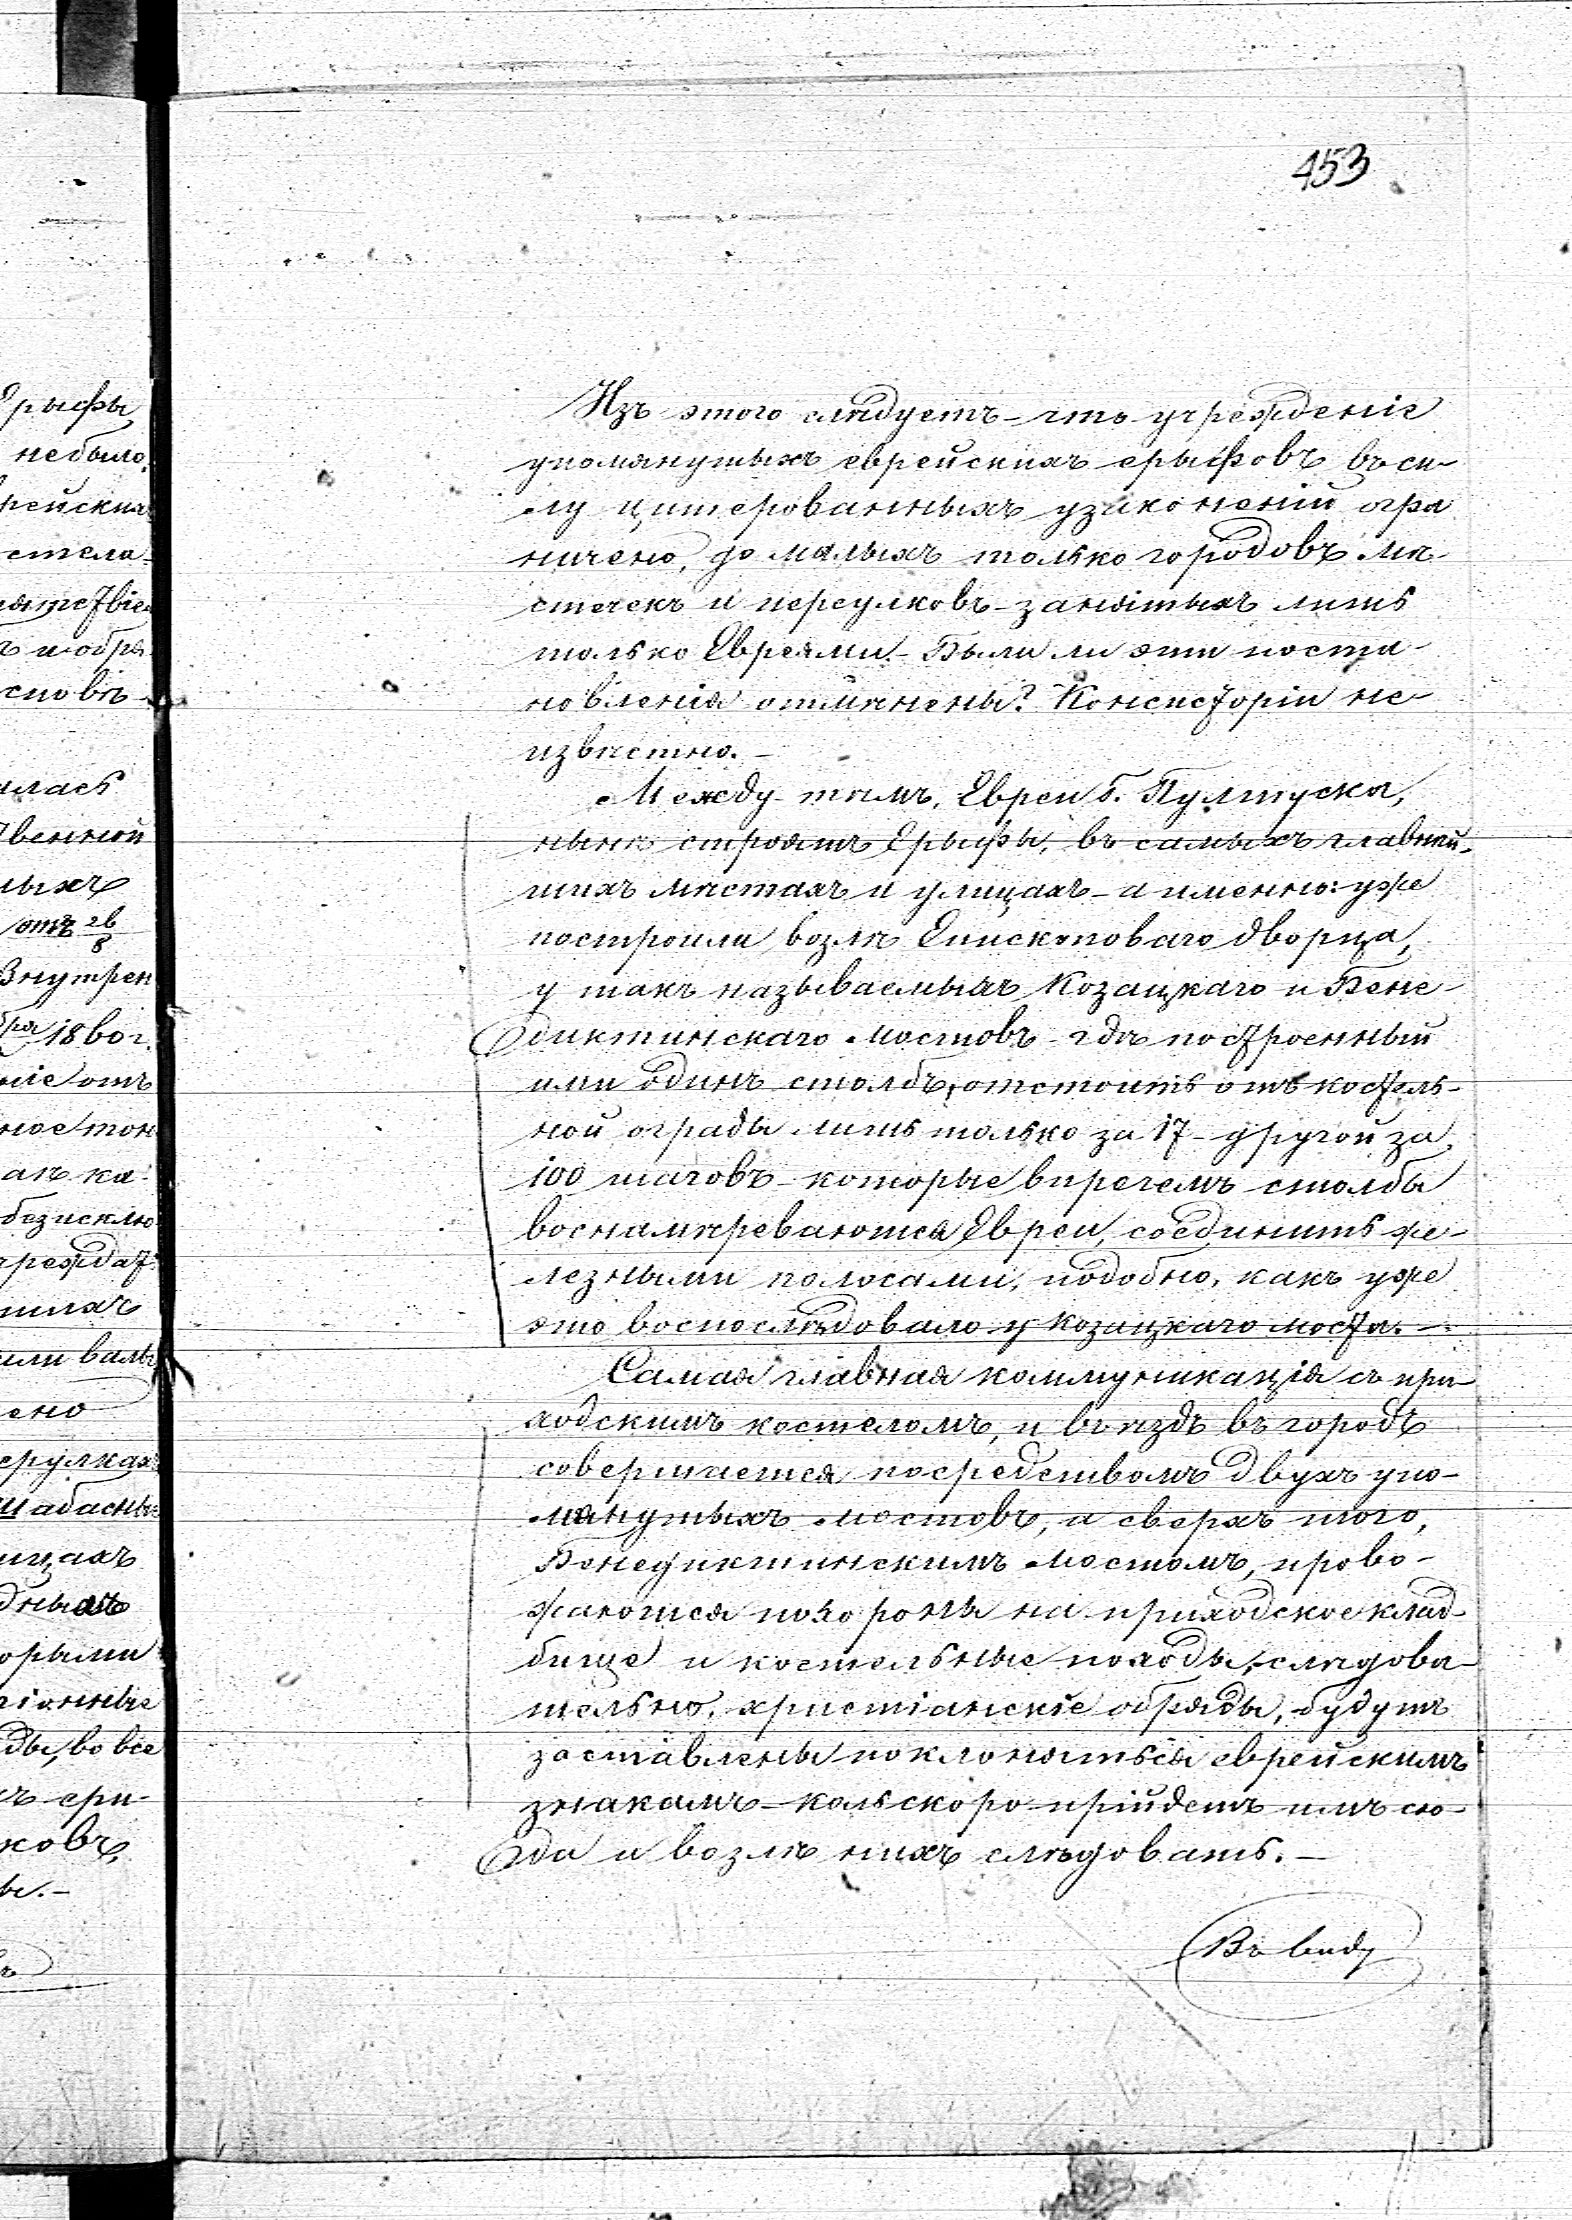 453
Изъ этого слѣдуетъ - что учрежденіе
упомянутыхъ еврейскихъ ерыфовъ въ си-
лу цитерованныхъ узаконеній огра
ничено, до малыхъ только городовъ мѣ-
стечекъ и переулковъ - занятыхъ лишь
только Евреями. - Были ли эти поста-
новленія отмѣнены? Консисторіи не-
извѣстно. -
Между тѣмъ, Евреи г. Пултуска,
нынѣ строятъ Ерыфы, въ самыхъ главнѣй-
шихъ мѣстахъ и улицахъ - а именно: уже
построили возлѣ Епископоваго дворца,
у такъ называемыхъ Козацкаго и Бене-
диктинскаго мостовъ - гдѣ построенный
ими одинъ столбъ, отстоитъ отъ костель-
ной ограды лишь только за 17 - другой за
100 шаговъ - которые впречемъ столбы
воснамѣреваются Евреи, соединить же-
лезными полосами, подобно, какъ уже
это воспослѣдовало у козацкаго моста. -
Самая главная коммуникація съ при-
ходскимъ костеломъ, и въѣздъ въ городъ
совершается посредствомъ двухъ упо-
мянутыхъ мостовъ, а сверхъ того,
Бенедиктинскимъ мостомъ, прово-
жаются похороны на приходское клад-
бище и костельные походы, - слѣдова-
тельно, христіанскіе обряды, будутъ
заставлены поклоняться еврейскимъ
знакамъ - коль скоро прійдетъ имъ сю-
да и возлѣ нихъ слѣдовать. -
Въ виду
рыфы
небыло.
рейскихъ
стела-
ятствіе
ъ и обря
сповъ
алась
венной
ыхъ
отъ 26/8
Внутрен
бря 1860 г.
ніе отъ
ное тон
анъ ка-
безисклю
чрежда7
шихъ
или валы
ено
ерулкахъ
Шабасны
ицахъ
дныхъ
орыми
іонные
ды, во все
ъ ери-
ковъ,
ы. -
ъ